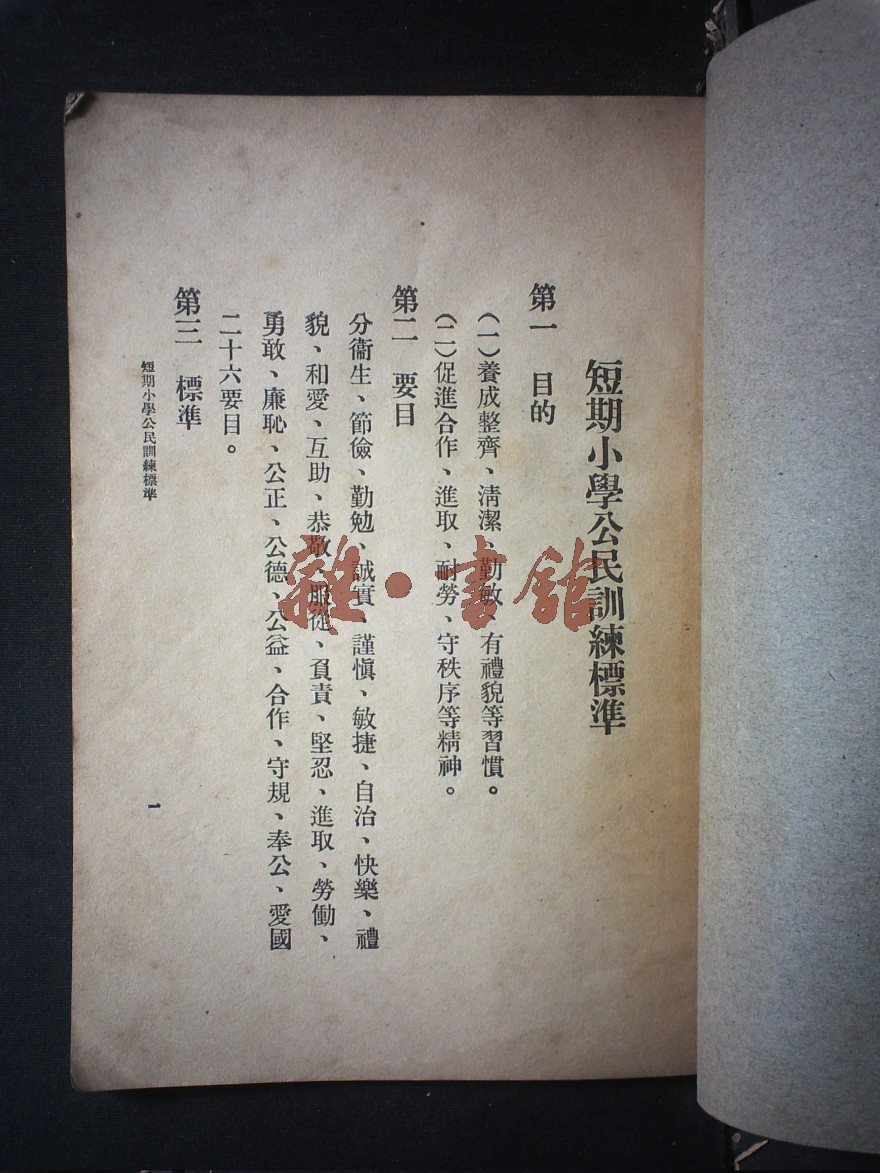 短期小學公民訓練標準
第一　目的
(一)養成整齊、清潔、勤敏、有禮貌等習慣。
(二)促進合作、進取、耐勞、守秩序等精神。
第二　要目
分衞生、節儉、勤勉、誠實、謹慎、敏捷、自治、快樂、禮
貌、和愛、互助、恭敬、服從、負責、堅忍、進取、勞働、
勇敢、廉恥、公正、公德、公益、合作、守規、奉公、愛國
二十六要目。
第三　標準
短期小學公民訓練標準
一
雜·書館